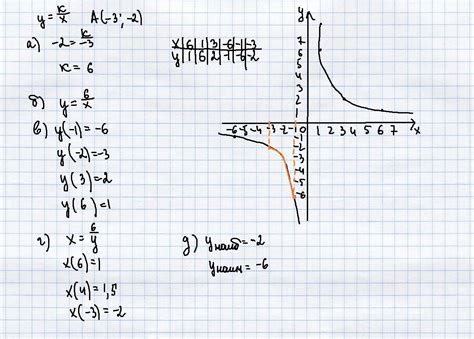 y = к/x   A(-3; -2)
а) -2 = к/-3
к = 6
б) y = 6/x
в) y(-1) = -6
y(-2) = -3
y(3) = 2
y(6) = 1
г) x = 6/y
x(6) = 1
x(4) = 1,5
x(-3) = -2
x | 6 | 1 | 3 | -6 | -1 | -3
y | 1 | 6 | 2 | -1 | -6 | -2
y
7
6
5
4
3
2
1
-6 -5 -4 -3 -2 -1 0 1 2 3 4 5 6 7 x
-1
-2
-3
-4
-5
-6
д) yнаиб = -2
yнаим = -6